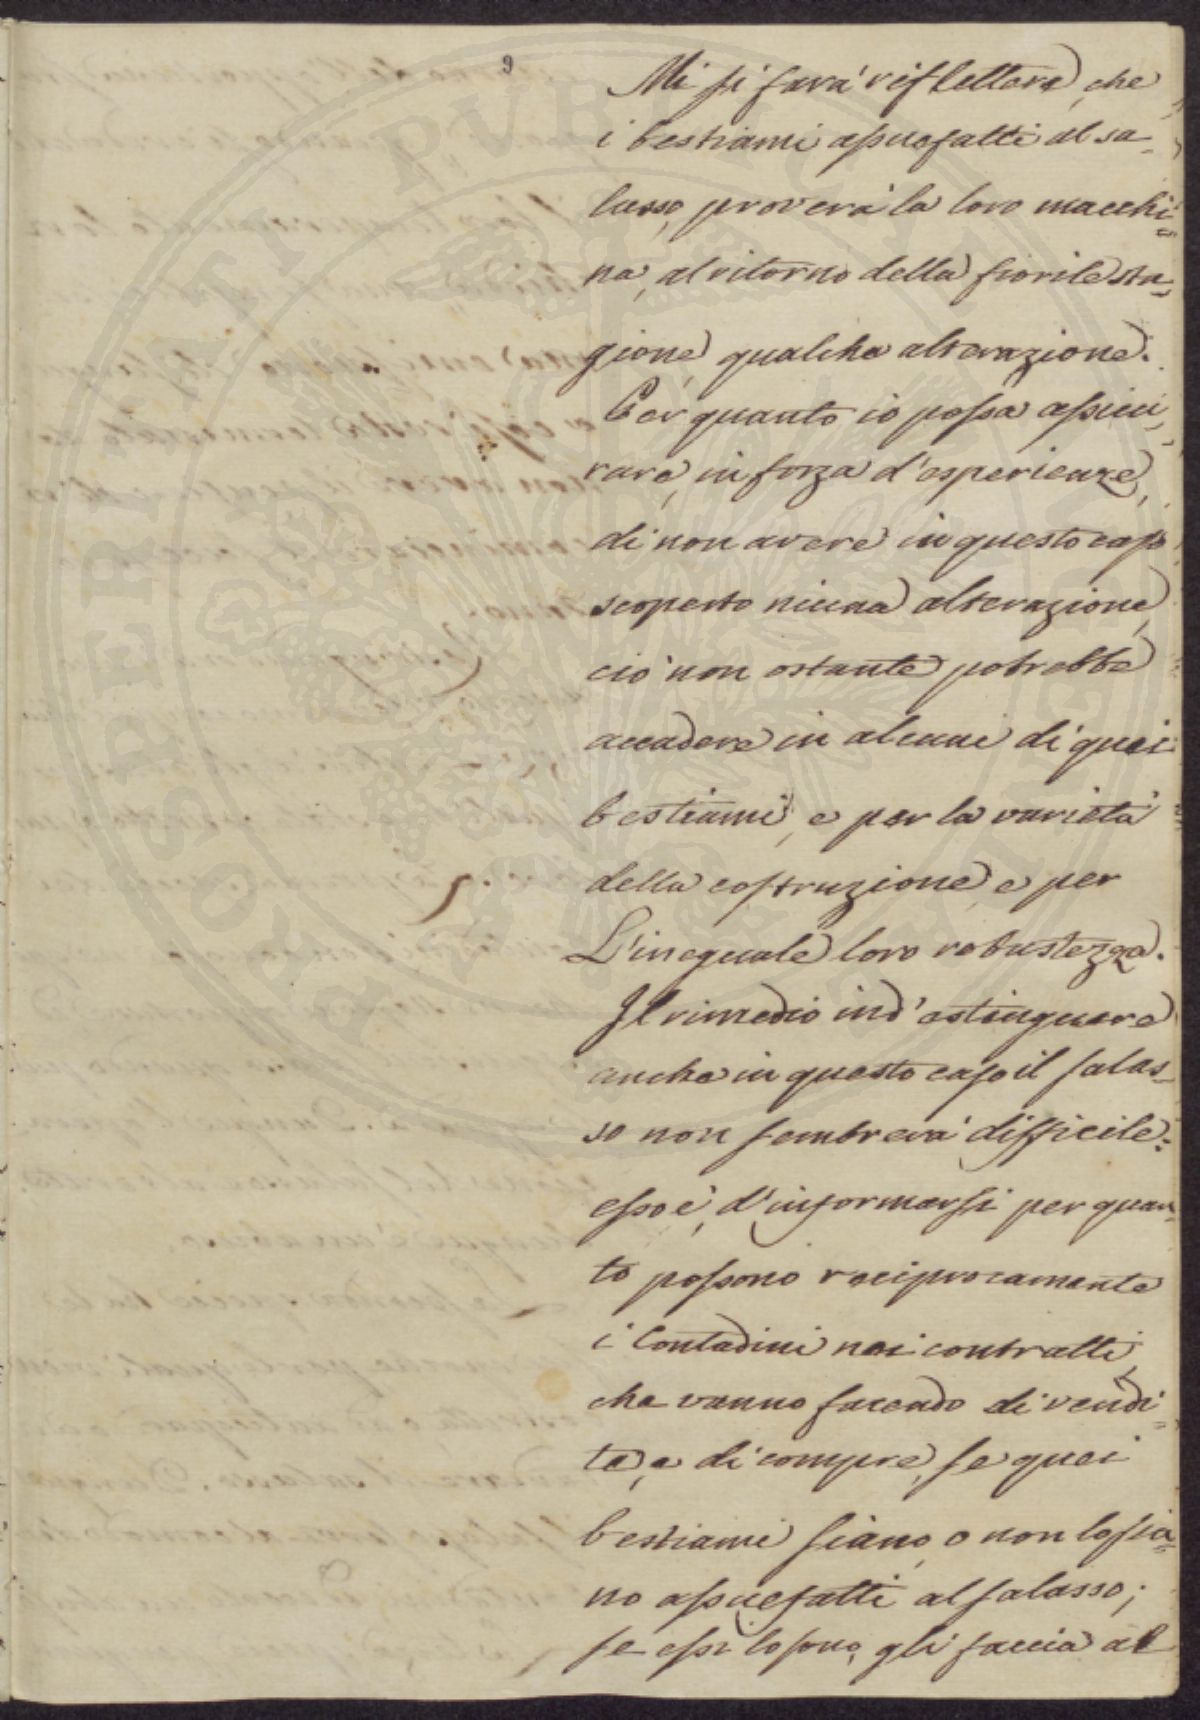 9
Mi si farà riflettere, che
i bestiami assuefatti al sa-
lasso, proverà la loro macchi=
na, al ritorno della fiorile sta=
gione, qualche alterazione.
Per quanto io possa assicu=
rare, in forza d'esperienze,
di non avere in questo caso
scoperto niuna alterazione,
ciò non ostante potrebbe
accadere in alcuni di quei
bestiami, e per la varietà
della costruzione, e per
L'ineguale loro robustezza.
Il rimedio ind' estinguere
anche in questo caso il salas=
so non sembrerà difficile:
esso è, d'informarsi per quan=
to possono reciprocamente
i Contadini nei contratti,
che vanno facendo di vendi=
te, e di compre, se quei
bestiami siano, o non lo sia=
no assuefatti al salasso;
se essi lo sono, gli faccia al
PROSPERITATI PVBLICAE